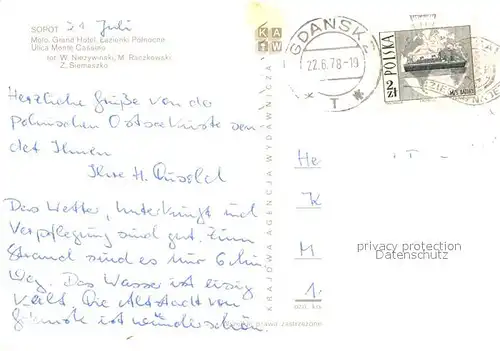 SOPOT 21 Juli
Molo. Grand Hotel. Łazienki Północne
Ulica Monte Cassino
fot. W. Nieżywiński, M. Raczkowski
Z. Siemaszko
Herzliche Grüße von der
polnischen Ostseeküste sen-
det Ihnen
Ihre H.
Das Wetter, Unterkunft und
Verpflegung sind gut. Zum
Strand sind es nur 6 Min.
Weg. Das Wasser ist eisig
kalt. Die Altstadt von
ist wunderschön.
KAW
KRAJOWA AGENCJA WYDAWNICZA
GDAŃSK
22.6.78-10
* T *
POLSKA
2 ZŁ
He
K
M
1
privacy protection
Datenschutz
prawa zastrzeżone